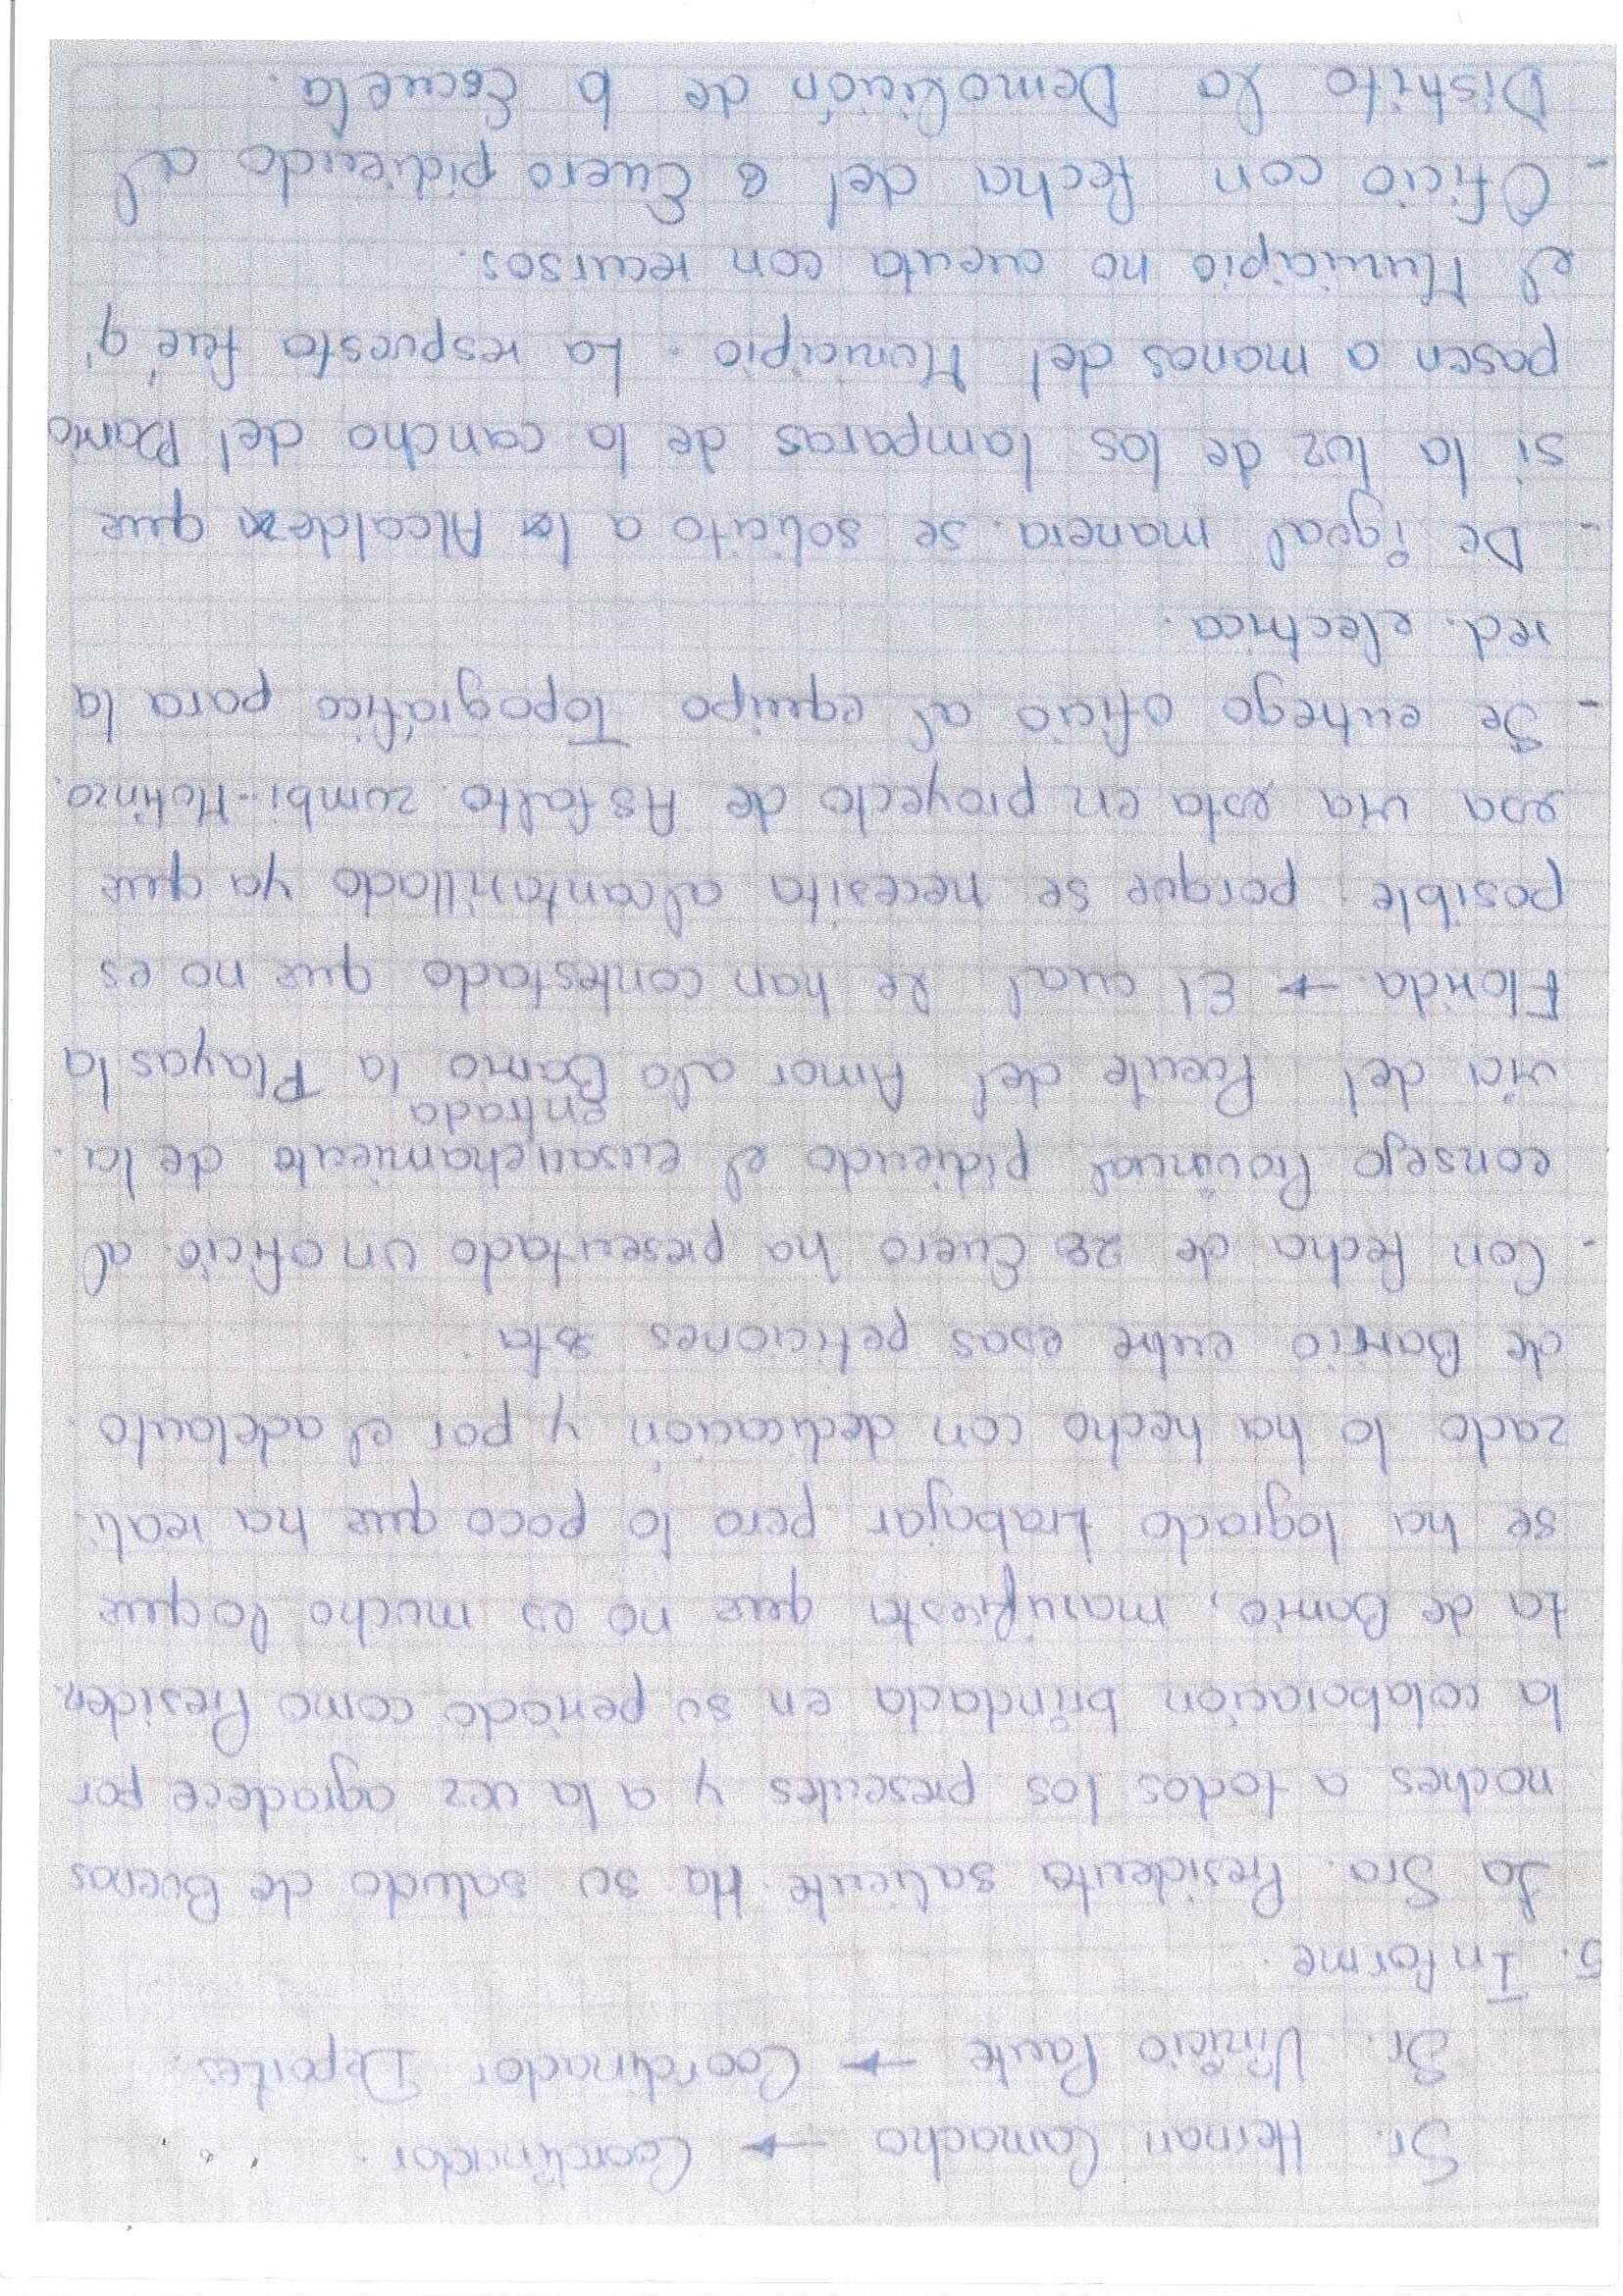 Sr. Hernan Camacho → Coordinador.
Sr. Vinicio Paute → Coordinador Deportes.
5. Informe.
La Sra. Presidenta saliente. Ha su saludo de Buenas
noches a todos los presentes y a la vez agradece por
la colaboración brindada en su período como Presiden.
ta de Barrio, manifiesta que no es mucho lo que
se ha logrado trabajar pero lo poco que ha reali.
zado lo ha hecho con dedicación y por el adelanto
de Barrio entre esas peticiones esta.
- Con fecha de 28 Enero ha presentado un oficio al
consejo Provincial pidiendo el ensanchamiento de la.
entrada
vía del Puente del Amor al Barrio la Playas la
Florida. → El cual le han contestado que no es
posible porque se necesita alcantarillado ya que
esa via esta en proyecto de Asfalto. zumbi-
- Se entrego oficio al equipo Topográfico para la
red. electrica.
- De igual manera. se solicito a la Alcalde que
si la luz de las lamparas de la cancha del Barrio
pasen a manos del Municipio. La respuesta fué q'
el Municipio no cuenta con recursos.
- Oficio con fecha del 6 Enero pidiendo al
Distrito la Demolición de la Escuela.